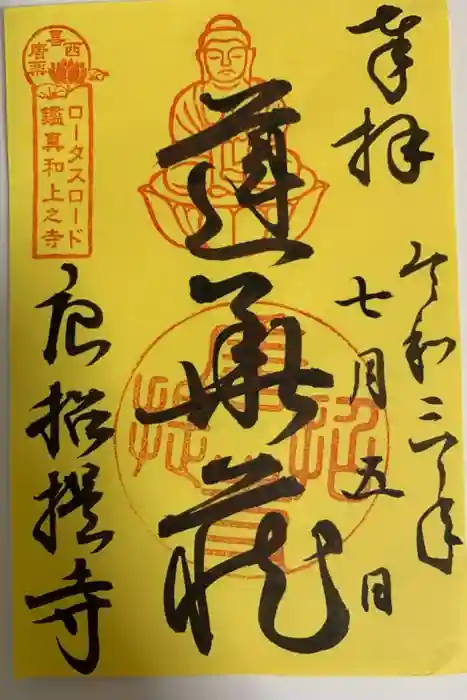 奉拝
令和三年
七月五日
蓮華蔵
唐招提寺
ロータスロード
鑑真和上之寺